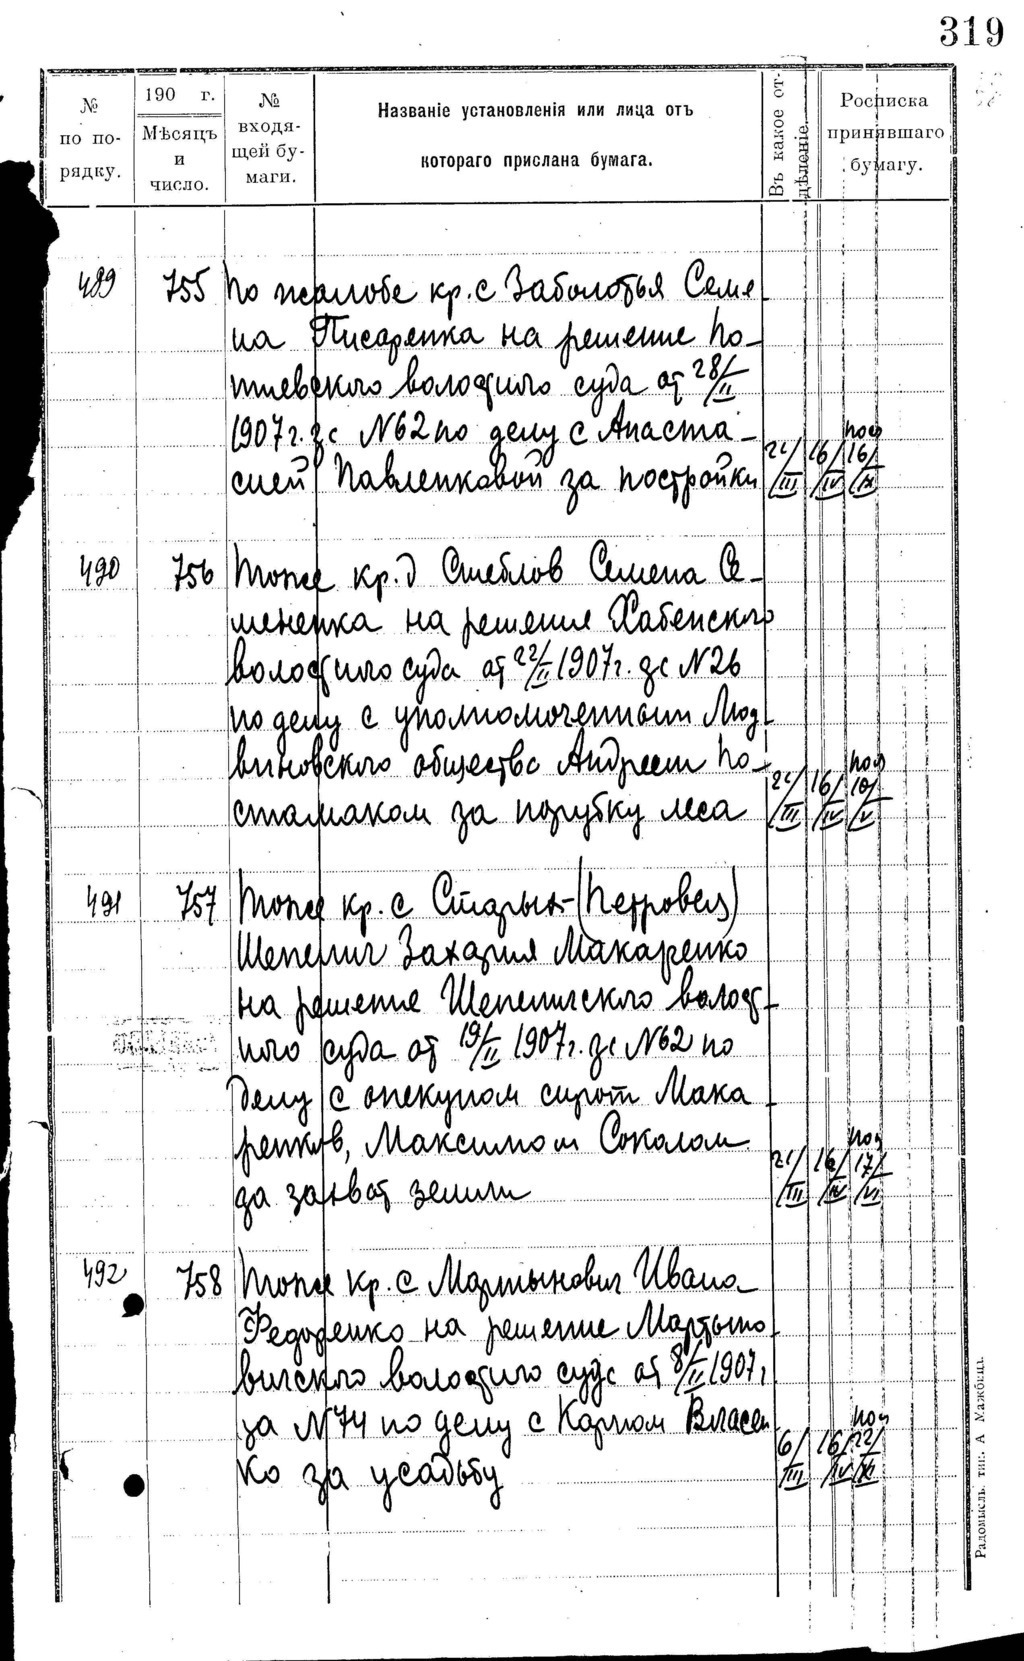 319
№ по порядку.
190 г.
Мѣсяцъ и число.
№ входящей бумаги.
Названіе установленія или лица отъ
котораго прислана бумага.
Въ какое отдѣленіе.
Росписка принявшаго бумагу.
489 755 По жалобе кр. с Заболотья Семе
на Писаренка на решение По-
тиевского волостного суда от 28/II
1907 г. за №62 по делу с Анаста-
сией Павленковой за постройки 21/III 16/IV 16/IX
490 756 Тоже кр. д Стеблов Семена Се-
мененка на решение Хабенского
волостного суда от 22/II 1907 г. за №26
по делу с уполномоченным Люд-
виновского общества Андреем По-
стамаком за порубку леса 21/III 16/IV 10/V
491 757 Тоже кр. с Старых-(Петровец)
Шепелич Захария Макаренко
на решение Шепеличского волост-
ного суда от 19/II 1907 г. за №62 по
делу с опекуном сирот Мака
ренков, Максимом Соколом
за захват земли 21/III 16/IV 17/VI
492 758 Тоже кр. с Мартынович Ивана
Федоренко на решение Мартыно
вичского волостного суда от 8/II 1907 г
за №74 по делу с Карпом Власен
ко за усадьбу 6/III 16/IV 22/XI
Радомысль. тип. А Мажбица.